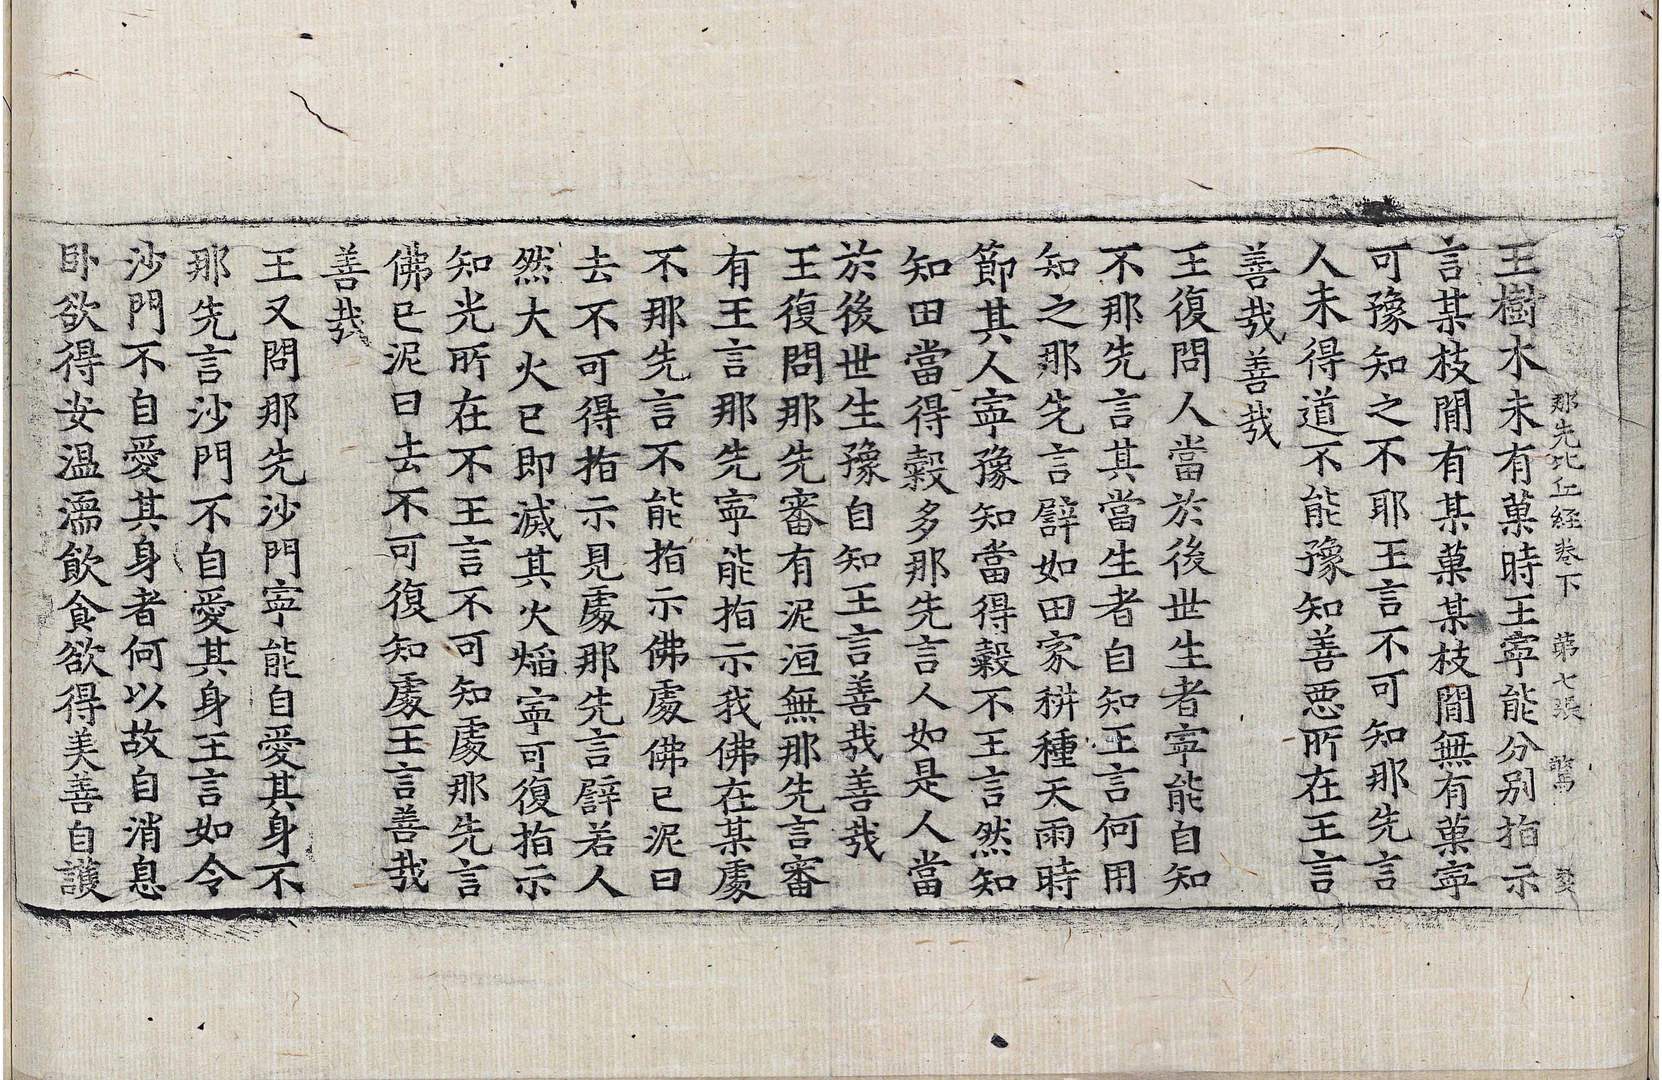 那先比丘經卷下 第七張 驚
王樹木未有菓時王寧能分別指示
言某枝閒有某菓某枝閒無有菓寧
可豫知之不耶王言不可知那先言
人未得道不能豫知善惡所在王言
善哉善哉
王復問人當於後世生者寧能自知
不那先言其當生者自知王言何用
知之那先言譬如田家耕種天雨時
節其人寧豫知當得穀不王言然知
知田當得穀多那先言人如是人當
於後世生豫自知王言善哉善哉
王復問那先審有泥洹無那先言審
有王言那先寧能指示我佛在某處
不那先言不能指示佛處佛已泥曰
去不可得指示見處那先言譬若人
然大火已即滅其火焰寧可復指示
知光所在不王言不可知處那先言
佛已泥曰去不可復知處王言善哉
善哉
王又問那先沙門寧能自愛其身不
那先言沙門不自愛其身王言如令
沙門不自愛其身者何以故自消息
臥欲得安溫濡飲食欲得美善自護